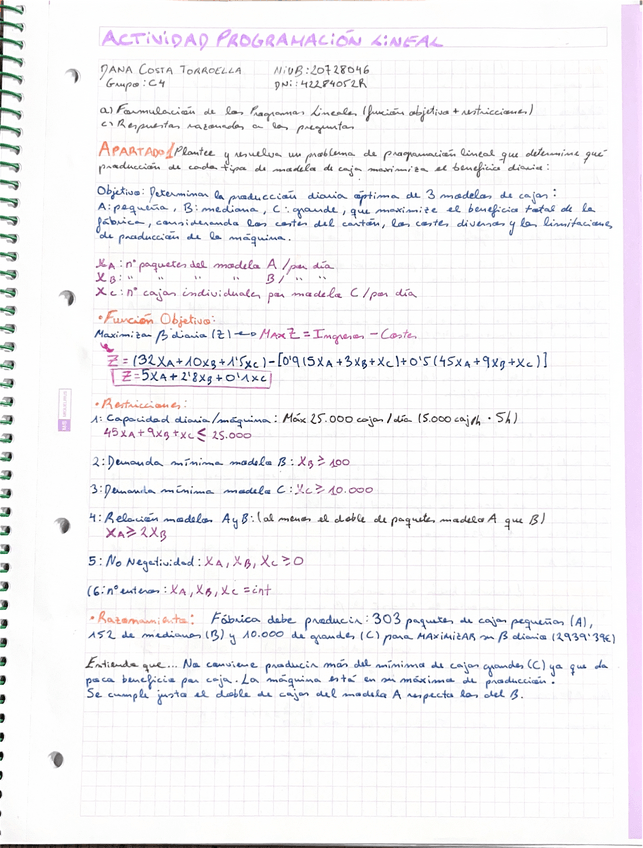 ACTIVIDAD PROGRAMACIÓN LINEAL
DANA COSTA TORROELLA NiUB: 20728046
Grupo: C4 DNi: 42284052R
a) Formulación de los Programas Lineales (función objetivo + restricciones)
c) Respuestas razonadas a las preguntas
APARTADO 1 Plantee y resuelva un problema de programación lineal que determine qué
producción de cada tipo de modelo de caja maximiza el beneficio diario:
Objetivo: Determinar la producción diaria óptima de 3 modelos de cajas:
A: pequeña, B: mediana, C: grande, que maximize el beneficio total de la
fábrica, considerando los costes del cartón, los costes diversos y las limitaciones
de producción de la máquina.
XA: nº paquetes del modelo A / por día
XB: " " " " B / " "
XC: nº cajas individuales por modelo C / por día
• Función Objetivo:
Maximizar β diario (Z) ↔ MAX Z = Ingresos - Costes
Z = (32XA + 10XB + 1'5XC) - [0'9(5XA + 3XB + XC) + 0'5(45XA + 9XB + XC)]
Z = 5XA + 2'8XB + 0'1XC
• Restricciones:
1: Capacidad diaria/máquina: Máx 25.000 cajas/día (5.000 caj/h · 5h)
45XA + 9XB + XC ≤ 25.000
2: Demanda mínima modelo B: XB ≥ 100
3: Demanda mínima modelo C: XC ≥ 10.000
4: Relación modelos A y B: (al menos el doble de paquetes modelo A que B)
XA ≥ 2XB
5: No Negatividad: XA, XB, XC ≥ 0
(6: nº enteros: XA, XB, XC = int
• Razonamiento: Fábrica debe producir: 303 paquetes de cajas pequeñas (A),
152 de medianas (B) y 10.000 de grandes (C) para MAXIMIZAR su β diario (2939'39€)
Entiendo que... No conviene producir más del mínimo de cajas grandes (C) ya que da
poco beneficio por caja. La máquina está en su máximo de producción.
Se cumple justo el doble de cajas del modelo A respecto las del B.